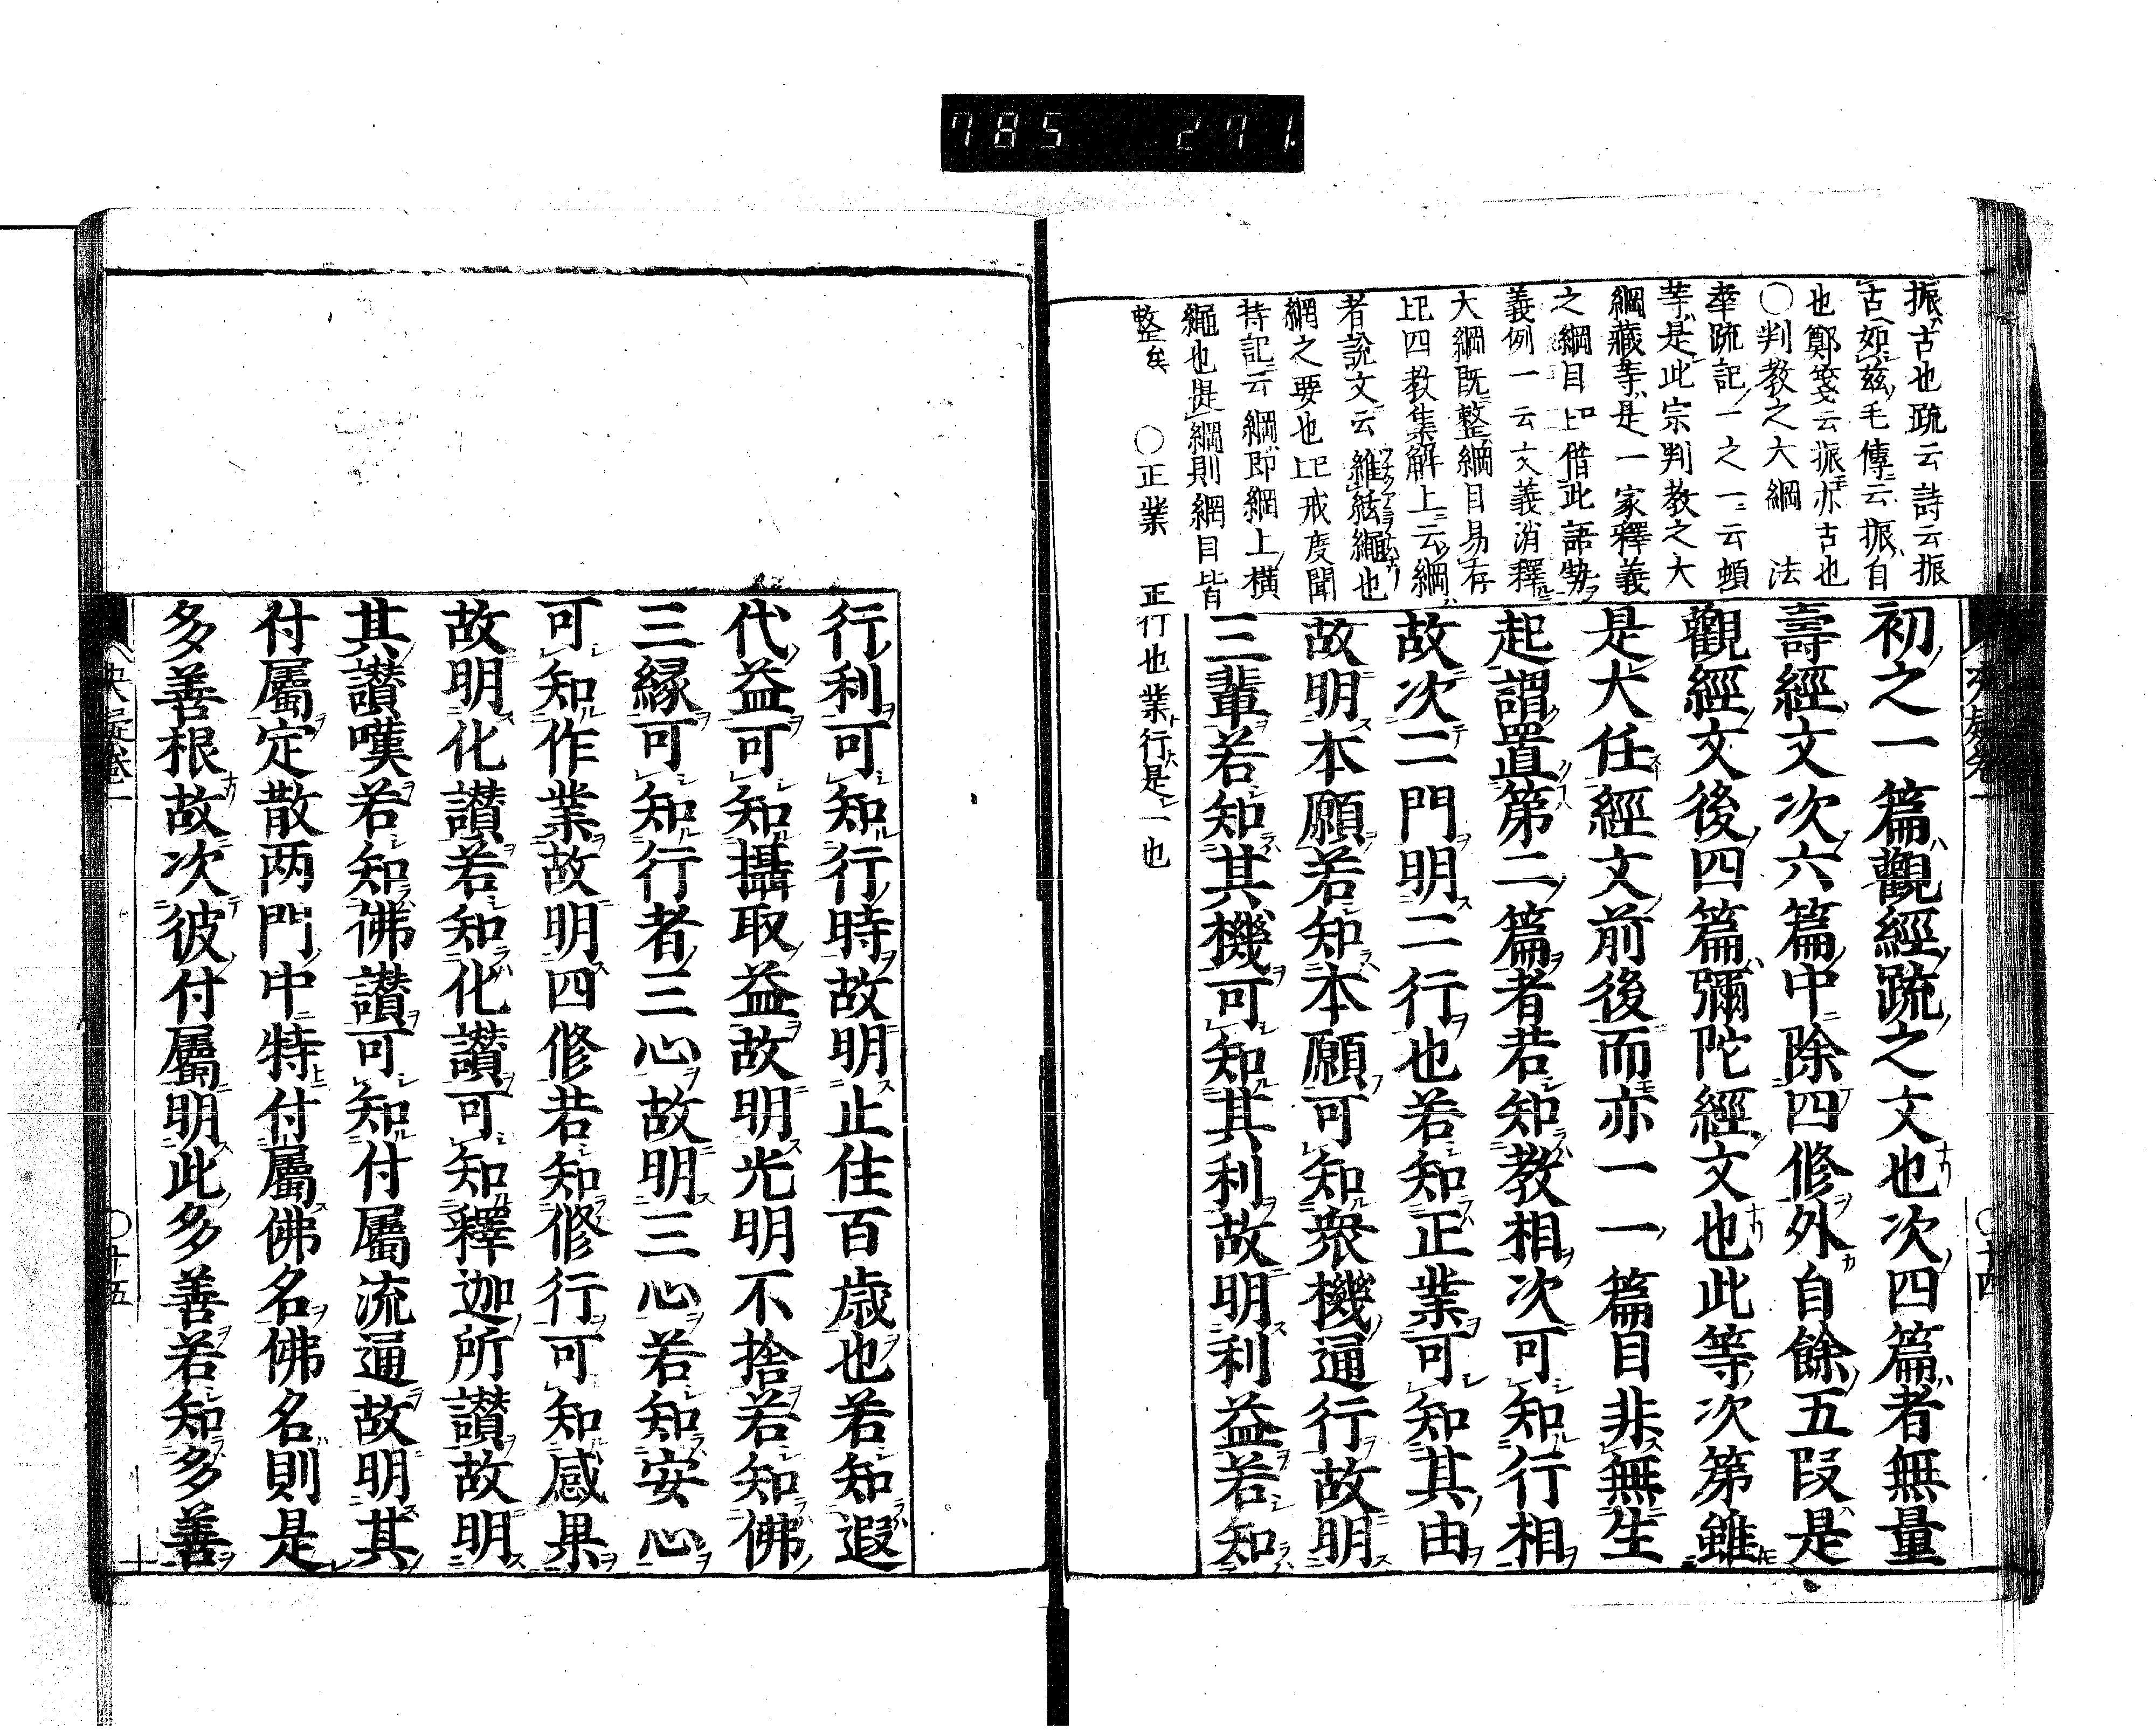 785 271.
振古也䟽云詩云振
古如茲毛傳云振自
也鄭箋云振亦古也
〇判教之大綱 法
華䟽記一之一云頓
等是此宗判教之大
綱藏等是一家釋義
之綱目 借此語勢
義例一云文義消釋
大綱既整綱目易存
四教集解上云綱
者說文云維紘繩也
網之要也 戒度聞
持記云綱即網上橫
繩也提綱則網目皆
整矣 〇正業 正行也業行是一也
初之一篇觀經䟽之文也次四篇者無量
壽經文次六篇中除四修外自餘五段是
觀經文後四篇彌陀經文也此等次第雖
是大任經文前後而亦一一篇目非無生
起謂置第二篇者若知教相次可知行相
故次二門明二行也若知正業可知其由
故明本願若知本願可知衆機通行故明
三輩若知其機可知其利故明利益若知
行利可知行時故明止住百歲也若知遐
代益可知攝取益故明光明不捨若知佛
三縁可知行者三心故明三心若知安心
可知作業故明四修若知修行可知感果
故明化讃若知化讃可知釋迦所讃故明
其讃嘆若知佛讃可知付屬流通故明其
付屬定散两門中特付屬佛名佛名則是
多善根故次彼付屬明此多善若知多善
〇十五